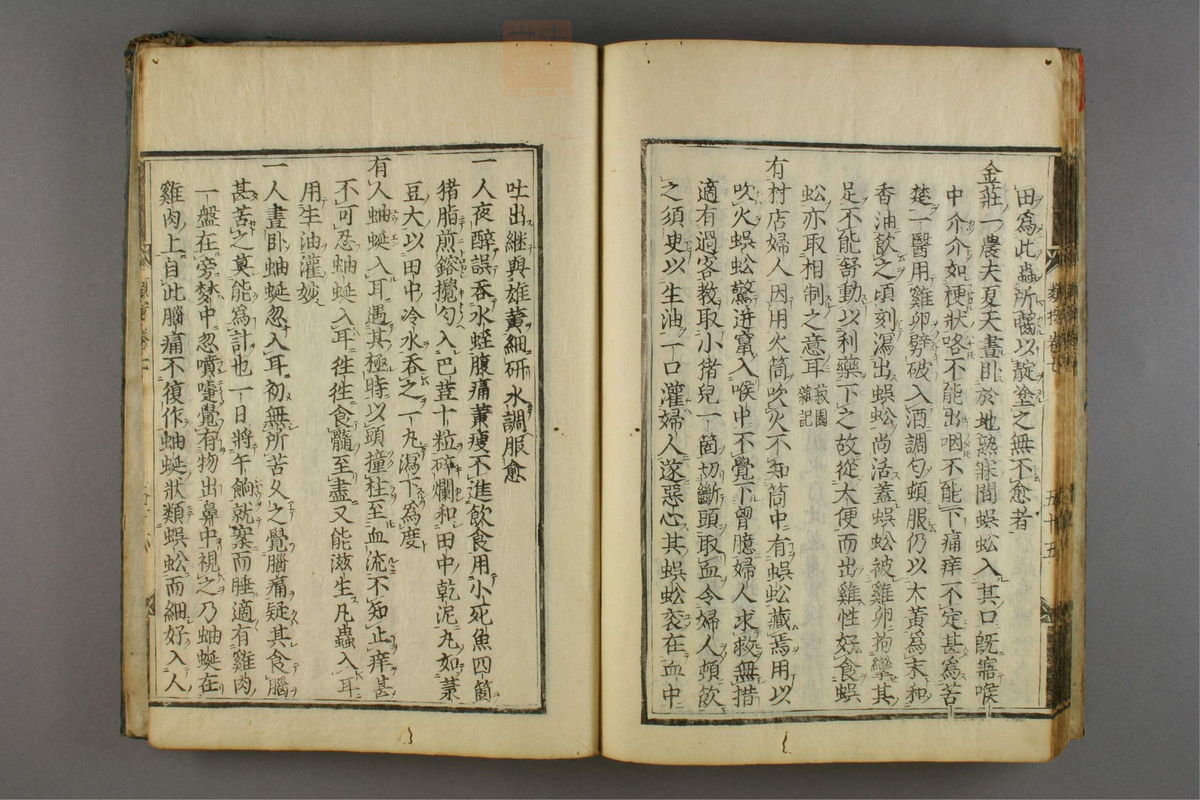 田為此蟲所齧以靛塗之無不愈者
金莊一農夫夏天晝臥於地熟寐間蜈蚣入其口既寤喉
中介介如梗狀咯不能出咽不能下痛痒不定甚為苦
楚一醫用雞卵劈破入酒調勻頓服仍以大黃為末和
香油飲之頃刻瀉出蜈蚣尚活蓋蜈蚣被雞卵拘攣其
足不能舒動以利藥下之故從大便而出雞性好食蜈
蚣亦取相制之意耳 菽園雜記
有村店婦人因用火筒吹火不知筒中有蜈蚣藏焉用以
吹火蜈蚣驚迸竄入喉中不覺下胸臆婦人求救無措
適有過客教取小猪兒一箇切斷頭取血令婦人頓飲
之須臾以生油一口灌婦人遂惡心其蜈蚣衮在血中
吐出繼與雄黃細研水調服愈
一人夜醉誤吞水蛭腹痛黃瘦不進飲食用小死魚四箇
猪脂煎鎔攪勻入巴荳十粒碎爛和田中乾泥丸如菉
豆大以田中冷水吞之一丸瀉下為度
有人蚰蜒入耳遇其極時以頭撞柱至血流不知止痒甚
不可忍蚰蜒入耳徃徃食髓至盡又能滋生凡蟲入耳
用生油灌妙
一人晝臥蚰蜒忽入耳初無所苦久之覺腦痛疑其食腦
甚苦之莫能為計也一日將午餉就案而睡適有雞肉
一盤在旁夢中忽噴嚏覺有物出鼻中視之乃蚰蜒在
雞肉上自此腦痛不復作蚰蜒狀類蜈蚣而細好入人
五十五